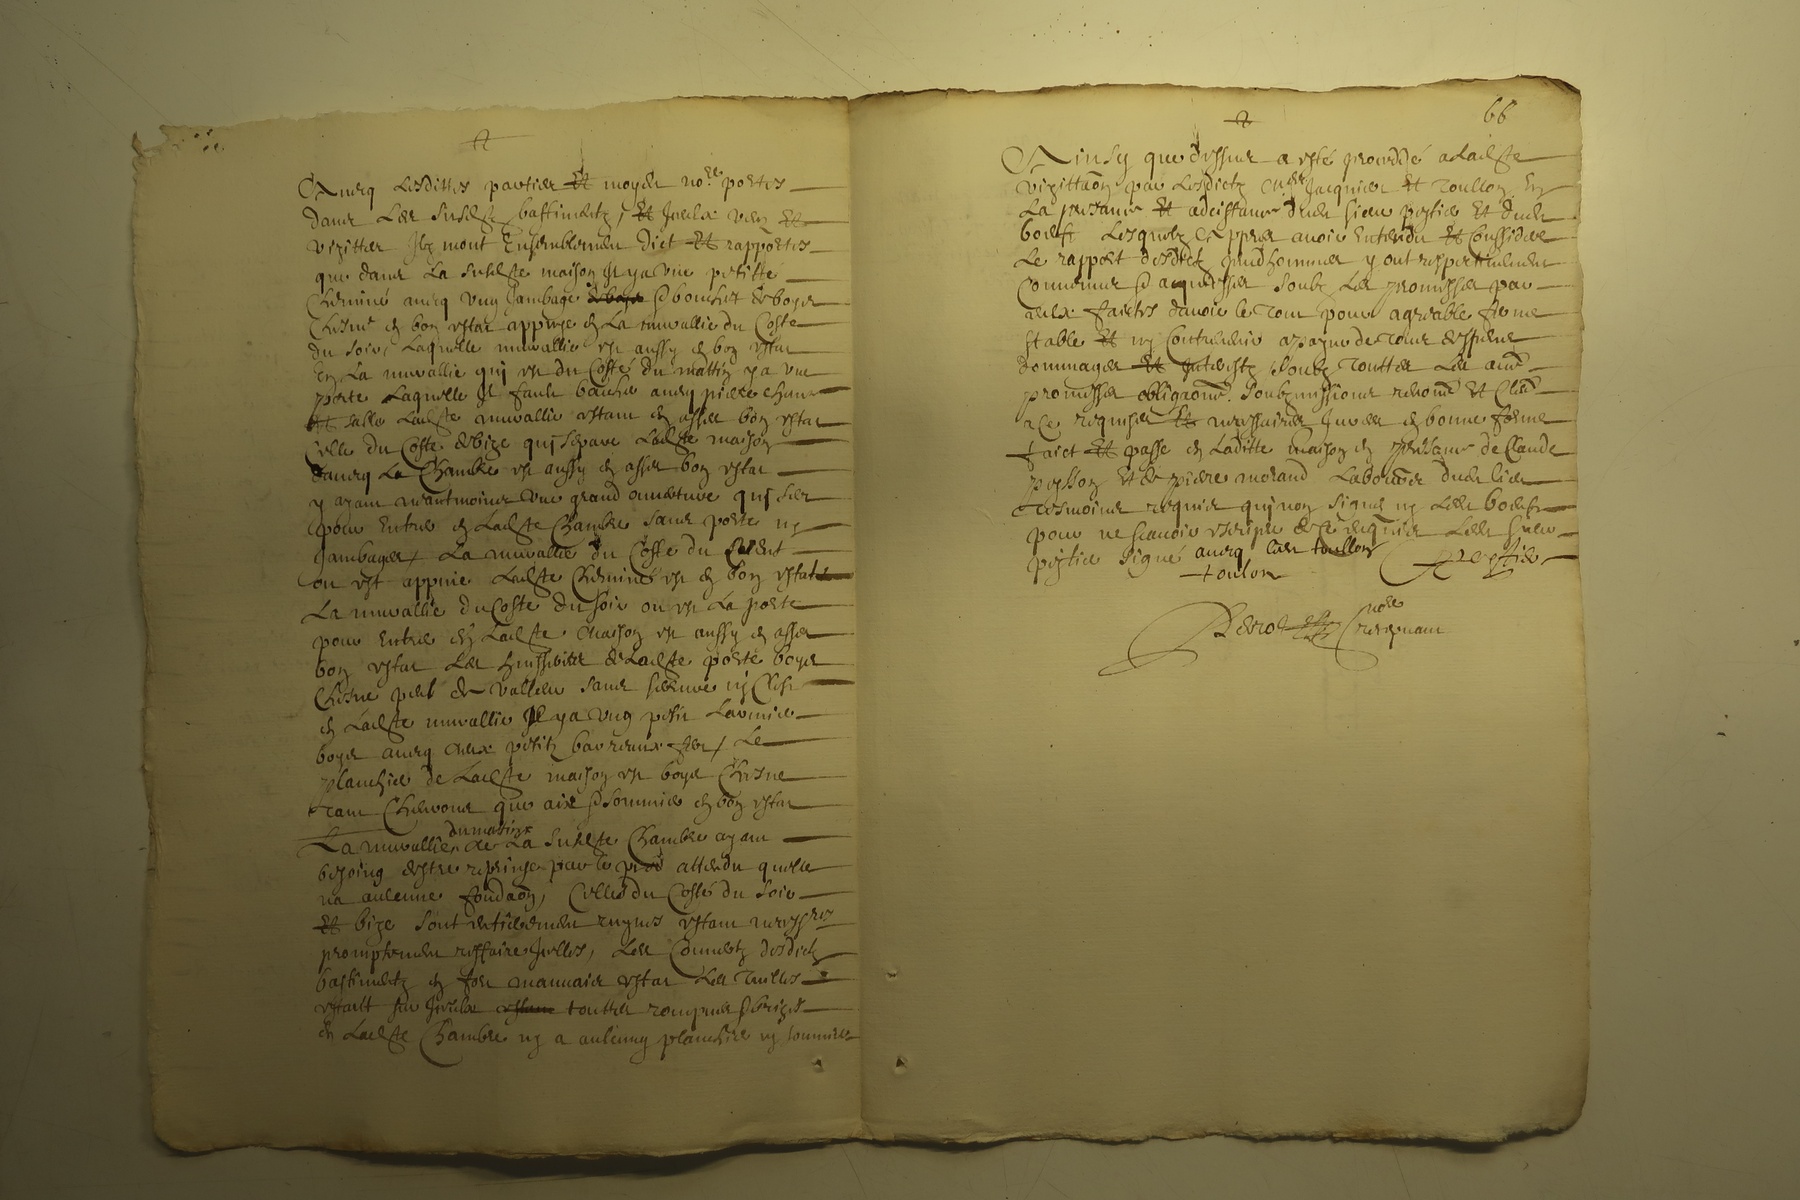 Avecq lesdittes parties et moyder no.re portes
dans les susd.te bastimentz, et Iceulx veu et
vizitter Ilz mont Ensemblemen dict et rapportes
que dans la susd.te maison Il ya vne petitte
Cheminé avecq vng Jambage de boys
Chesne en bon estat appuye en la murallie du Coste
du soir, Laquelle murallie est aussy en bon estat
En La murallie qui est du Costé du mattin ya vne
porte Laquelle Il fault avecq pierre chaux
et sable Lad.te murallie estant en asses bon estat
Celle du Coste de bize qui separe Lad.te maison
davecq La Chambre est aussy en asses bon estat
y ayant neantmoins vne grand ouverture qui sert
pour Entrer en Lad.te Chambre sans porte ny
Jambages, La murallie du Coste du
ou est appuie Lad.te Cheminé est en bon estat
La murallie du Coste du soir ou est La porte
pour Entrer en Lad.te maison est aussy en asses
bon estat Les de Lad.te porte boys
Chesne peu de valleur sans serrure ny Clefz
en Lad.te murallie Il ya vng petit Larmier
boys avecq deux petitz barreaux fer, Le
planchier de Lad.te maison est boys Chesne
tant Chevrons que aix sommier en bon estat
La murallie du mattin de La susd.te Chambre ayant
besoing destre reprinse par le pied attendu quelle
na aulcune fondaon, Celles du Costé du soir
et bize sont entieremen ruynes estant
promptemen reffaire Icelles, Les Couvertz desdictz
bastimentz en fort mauvais estat Les Tuilles
estant sur Iceulx touttes rompues brizes
En Lad.te Chambre ny a aulcung planchier ny sommier
66
Ainsy que dessus a esté procedé a lad.te
vizittaon par Lesdictz M.es Jacquier et Toullon En
La presance et adcistance dudit sieur peytier et dudit
boeuf Lesquelz Appres avoir Entendu et Conssidere
Le rapport desdictz preudhommes y ont respectivemen
Convenus acquiesser soubz Les promesses par
eulx faictes davoir le tout pour agreable ferme
stable et ny Contrevenir a payne de tous despens
dommages et Interestz soubz touttes Les aut.
promesses obligaons. soubzmissions renon. et Clau.
a Ce requises et necessaires Jurees en bonne forme
faict et passe en Laditte maison en presance de Claude
poysson et de pierre morand Laboureur dudit lieu
tesmoins requis qui non signe ny Ledit boeuf
pour ne scavoir escripre de Ce enquis Ledit sieur
peytier signé avecq led. toullon
toulon A peytier
no.re
recepvant